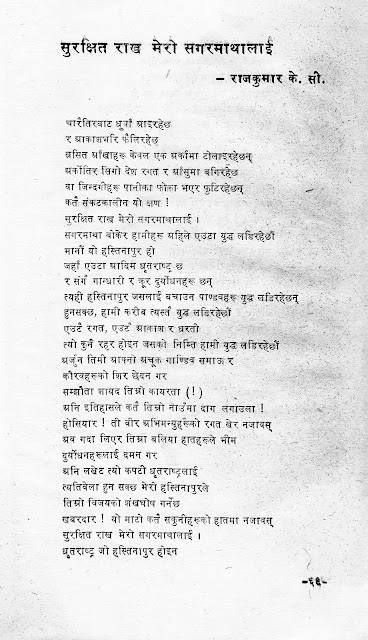 सुरक्षित राख मेरो सगरमाथालाई
– राजकुमार के. सी.
चारैतिरबाट धूवाँ आइरहेछ
र आकाशभरि फैलिरहेछ
त्रसित आँखाहरू केवल एक अर्कामा टोलाइरहेछन्
अर्कोतिर सिंगो देश रगत र आँसुमा बगिरहेछ
वा जिन्दगीहरू पानीका फोका भएर फुटिरहेछन्
कतै संकटकालीन यो क्षण !
सुरक्षित राख मेरो सगरमाथालाई ।
सगरमाथा बोकेर हामीहरू अहिले एउटा युद्ध लडिरहेछौं
मानौं यो हस्तिनापुर हो
जहाँ एउटा आदिम धृतराष्ट्र छ
र सँगै गान्धारी र क्रूर दुर्योधनहरू छन्
त्यही हस्तिनापुर जसलाई बचाउन पाण्डवहरू युद्ध लडिरहेछन्
हुनसक्छ, हामी करीब त्यस्तै युद्ध लडिरहेछौं
एउटै रगत, एउटै आकाश र धरती
त्यो कुनै रहर होइन जसको निम्ति हामी युद्ध लडिरहेछौं
अर्जुन तिमी आफ्नो अचूक गाण्डिव समाऊ र
कौरवहरूको शिर छेदन गर
सम्झौता शायद तिम्रो कायरता (!)
अनि इतिहासले कतै तिम्रो नाउँमा दाग लगाउला !
होसियार ! ती वीर अभिमन्युहरूको रगत खेर नजावस्
अब गदा लिएर तिम्रा बलिया हातहरूले भीम
दुर्योधनहरूलाई दमन गर
अनि लखेट त्यो कपटी धृतराष्ट्रलाई
त्यतिबेला हुन सक्छ मेरो हस्तिनापुरले
तिम्रो विजयको शंखघोष गर्नेछ
खबरदार ! यो माटो कतै सकूनीहरूको हातमा नजावस्
सुरक्षित राख मेरो सगरमाथालाई ।
धृतराष्ट्र जो हस्तिनापुर होइन
–६९–